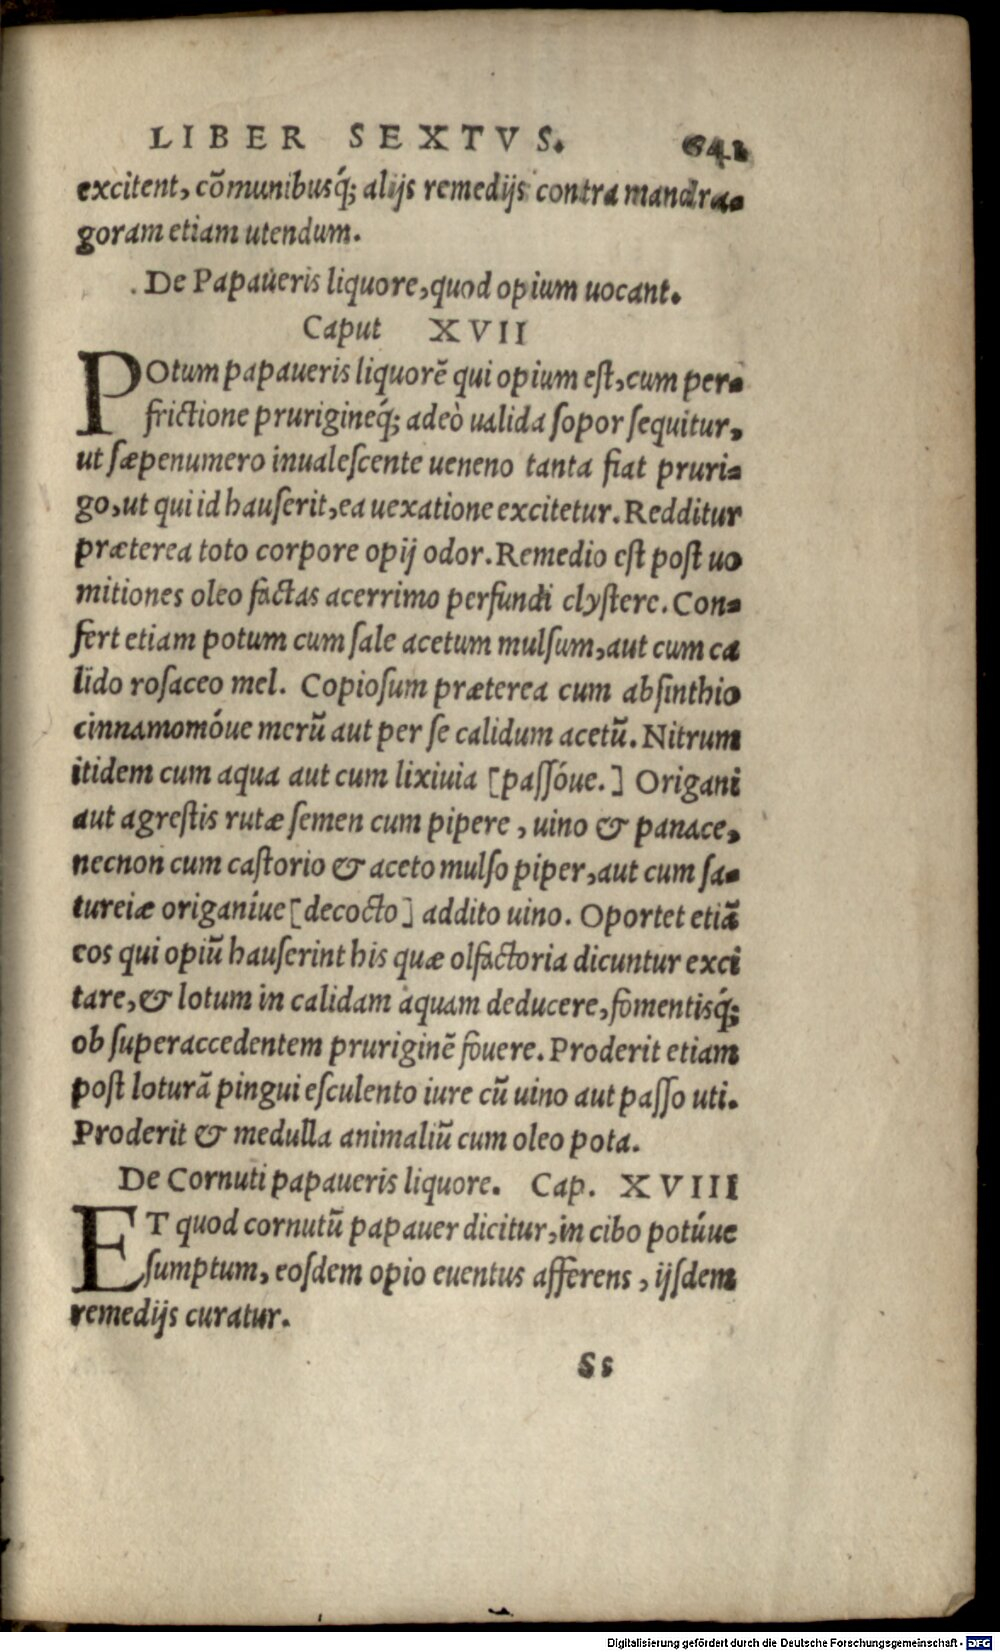 LIBER SEXTVS. 641
excitent, cõmunibusq́; alijs remedijs contra mandra-
goram etiam utendum.
De Papaueris liquore, quod opium uocant.
Caput XVII
POtum papaueris liquorẽ qui opium est, cum per-
frictione prurigineq́; adeò ualida sopor sequitur,
ut sæpenumero inualescente ueneno tanta fiat pruri-
go, ut qui id hauserit, ea uexatione excitetur. Redditur
præterea toto corpore opij odor. Remedio est post uo
mitiones oleo factas acerrimo perfundi clystere. Con-
fert etiam potum cum sale acetum mulsum, aut cum ca
lido rosaceo mel. Copiosum præterea cum absinthio
cinnamomóue merũ aut per se calidum acetũ. Nitrum
itidem cum aqua aut cum lixiuia [passóue.] Origani
aut agrestis rutæ semen cum pipere, uino & panace,
necnon cum castorio & aceto mulso piper, aut cum sa-
tureiæ origaniue [decocto] addito uino. Oportet etiã
eos qui opiũ hauserint his quæ olfactoria dicuntur exci
tare, & lotum in calidam aquam deducere, fomentisq́;
ob superaccedentem pruriginẽ fouere. Proderit etiam
post loturã pingui esculento iure cũ uino aut passo uti.
Proderit & medulla animaliũ cum oleo pota.
De Cornuti papaueris liquore. Cap. XVIII
ET quod cornutũ papauer dicitur, in cibo potúue
sumptum, eosdem opio euentus afferens, ijsdem
remedijs curatur.
Ss
Digitalisierung gefördert durch die Deutsche Forschungsgemeinschaft - DFG